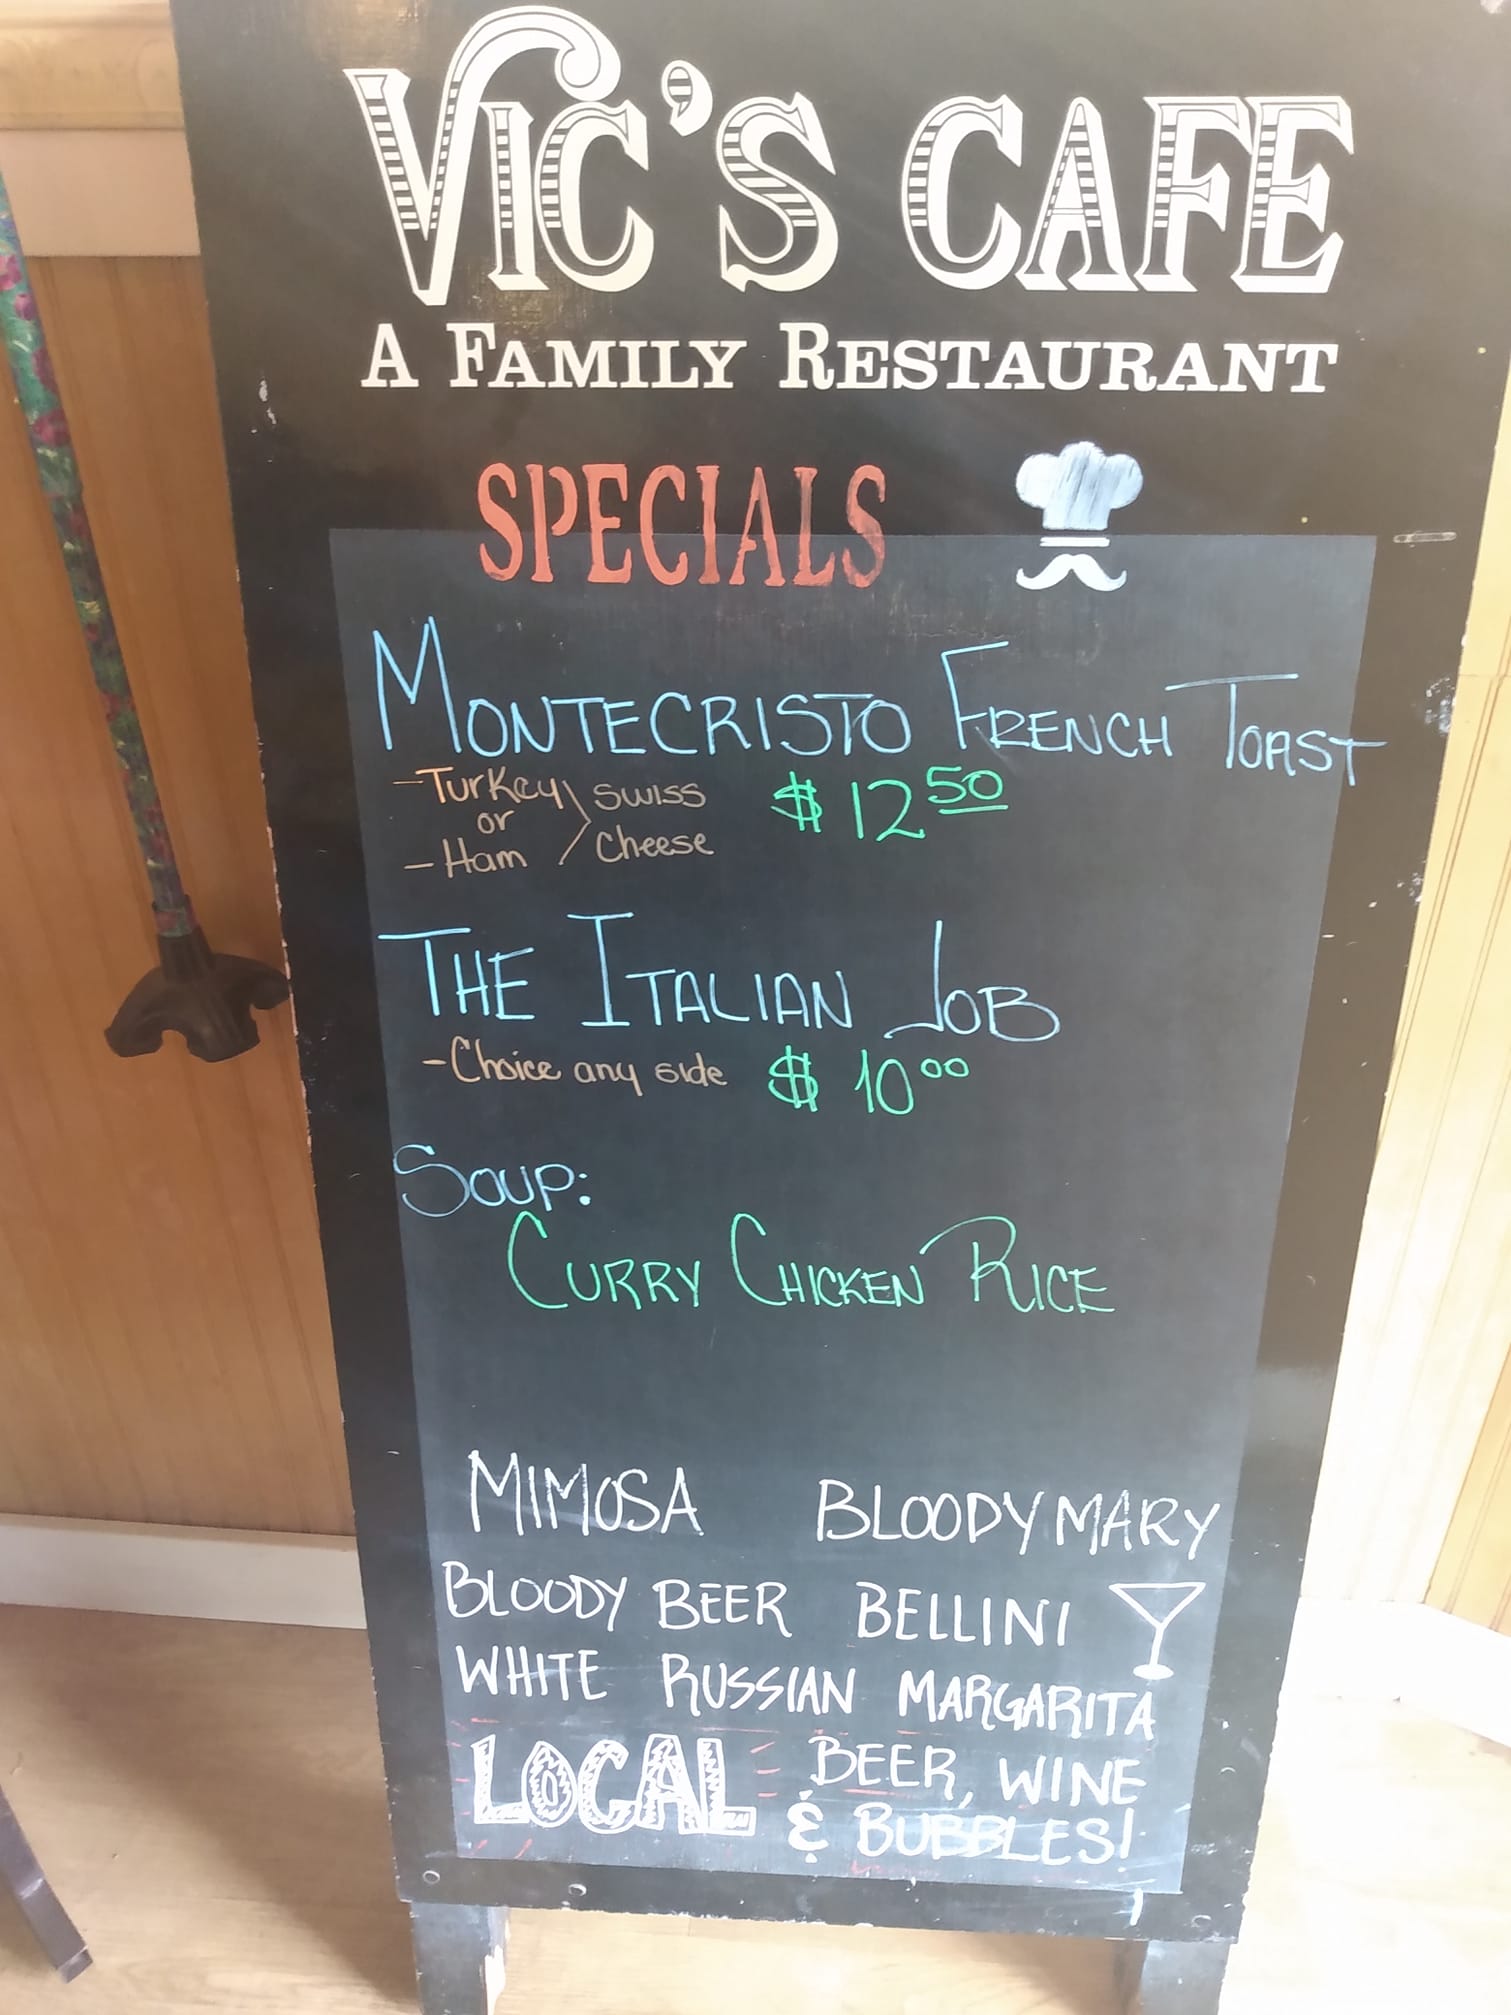 VIC'S CAFE
A FAMILY RESTAURANT
SPECIALS
MONTECRISTO FRENCH TOAST
-Turkey
or
-Ham
swiss
cheese
$12 50
THE ITALIAN JOB
-Choice any side $10 00
SOUP:
CURRY CHICKEN RICE
MIMOSA BLOODY MARY
BLOODY BEER BELLINI
WHITE RUSSIAN MARGARITA
LOCAL BEER, WINE
& BUBBLES!